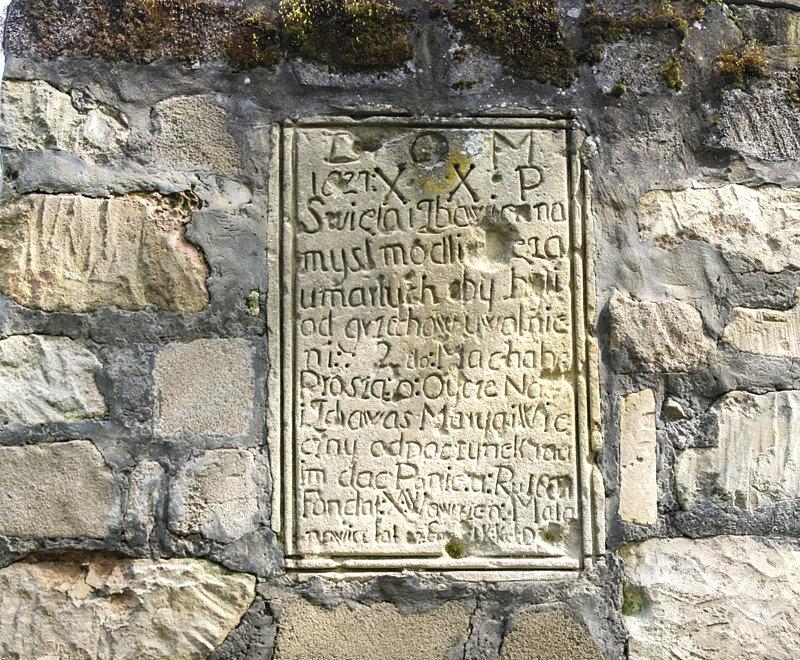 D O M
1827: X X P
Swięta i Zbawienna
mysl modli za
umarłych aby byli
od grzechow uwolnie
ni: 2. do: Machab:
Proszą o: Oycze Na.
i Zdrawas Marya i Wie
czny odpoczynek rac
m dac Panie a:
Fondat: X Wawrzien: Mala
nowicz